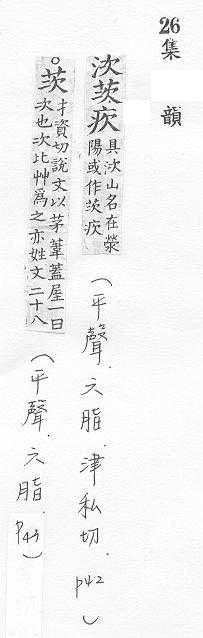 26
集韻
㳄茨㾊具茨山名在滎陽或作茨㾊(平聲.六脂.津私切.p42)
。茨才資切說文以茅葦蓋屋一曰次也次比艸爲之亦姓文二十八(平聲.六脂.p43)